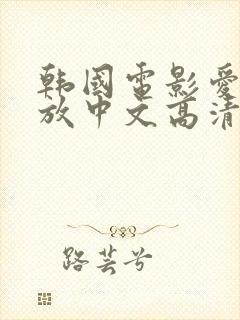 韩國電影愛
放中文高清
路芸兮